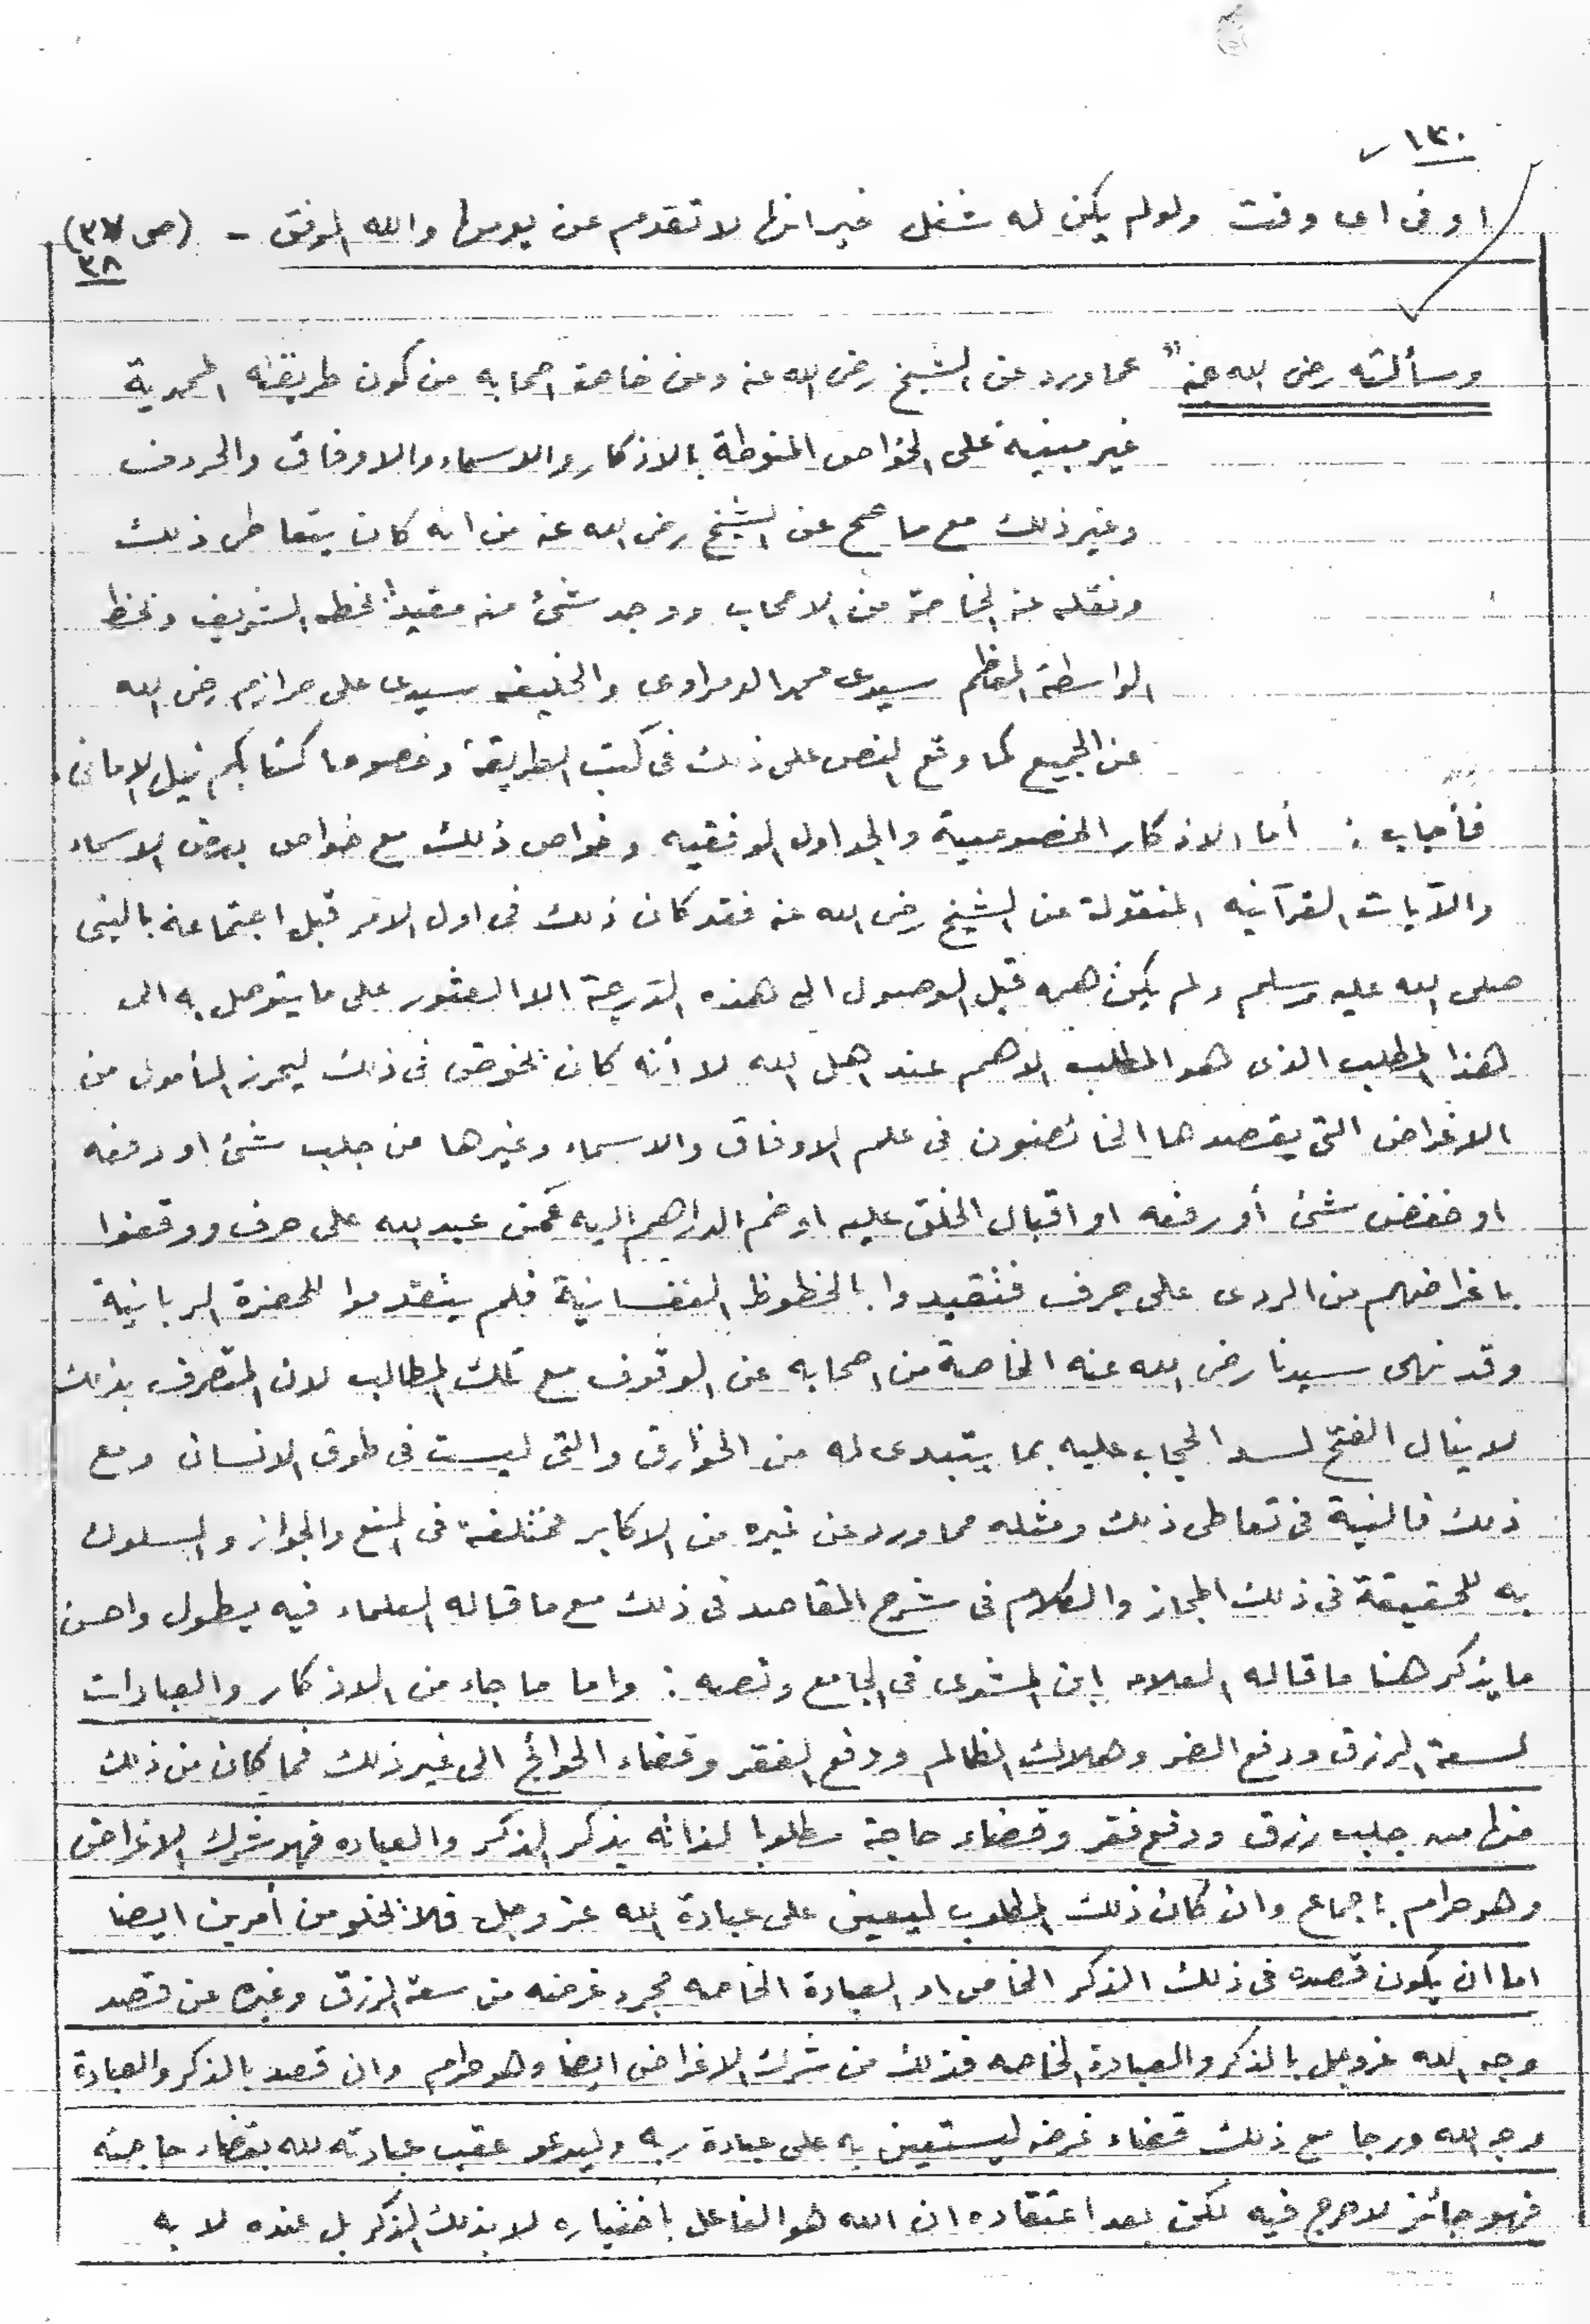 ١٣٠
او فى اى وقت ولولم يكن له شغل غير انها لا تقدم عن يومها والله الموفق - (ص ٣٧)
٣٨
وسألته رضى الله عنه عما ورد عن الشيخ رضى الله عنه وعن خاصة اصحابه من كون طريقته المحمدية
غير مبنية على الخواص المنوطة بالاذكار والاسماء والاوفاق والحروف
وغير ذلك مع ما صح عن الشيخ رضى الله عنه من انه كان يتعاطى ذلك
ونقله عنه الخاصة من الاصحاب ووجد شئ منه مقيدا بخطه الشريف وبخط
الواسطة المعظم سيدى محمد الدمراوى والخليفه سيدى على حرازم رضى الله
عن الجميع كما وقع النص على ذلك فى كتب الطريقة وخصوصا كتابكم نيل الامانى
فأجاب : أما الاذكار الخصوصية والجداول الوفقيه وخواص ذلك مع خواص بعض الاسماء
والآيات القرآنيه المنقولة عن الشيخ رضى الله عنه فقد كان ذلك فى اول الامر قبل اجتماعه بالنبى
صلى الله عليه وسلم ولم يكن همه قبل الوصول الى هذه الدرجة الا العثور على ما يتوصل به الى
هذا المطلب الذى هو المطلب الاهم عند اهل الله لا أنه كان يخوض فى ذلك ليحرز المأمول من
الاغراض التى يقصدها الخائضون فى علم الاوفاق والاسماء وغيرها من جلب شئ او دفعه
او خفض شئ أو رفعه او اقبال الخلق عليه او ضم الدراهم اليه كمن عبد الله على حرف ووقفوا
باغراضهم من الردى على جرف فتقيدوا بالحظوظ النفسانية فلم يتقدموا للحضرة الربانية
وقد نهى سيدنا رضى الله عنه الخاصة من اصحابه عن الوقوف مع تلك المطالب لان المتصرف بذلك
لا ينال الفتح لسد الحجاب عليه بما يتبدى له من الخوارق والتى ليست فى طوق الانسان ومع
ذلك فالنية فى تعاطى ذلك ومثله مما ورد عن غيره من الاكابر مختلفة فى المنع والجواز والسلوك
به للحقيقة فى ذلك المجاز والكلام فى شرح المقاصد فى ذلك مع ما قاله العلماء فيه يطول واحسن
ما يذكر هنا ما قاله العلامه ابن المشرى فى الجامع ونصه : واما ما جاء من الاذكار والعبادات
لسعة الرزق ودفع الضر وهلاك الظالم ودفع الفقر وقضاء الحوائج الى غير ذلك فما كان من ذلك
من جلب رزق ودفع فقر وقضاء حاجة مطلوبا لذاته بذكر الذكر والعباده فهو شرك الاغراض
وهو حرام باجماع وان كان ذلك المطلوب ليعين على عبادة الله عز وجل فلا يخلو من أمرين ايضا
اما ان يكون قصده فى ذلك الذكر الخاص او العبادة الخاصه مجرد غرضه من سعة الرزق وغيره عن قصد
وجه الله عز وجل بالذكر والعبادة الخاصه فذلك من شرك الاغراض ايضا وهو حرام وان قصد بالذكر والعبادة
وجه الله ورجا مع ذلك قضاء غرضه ليستعين به على عبادة ربه وليدعو عقب عبادته لله بقضاء حاجته
فهو جائز لا حرج فيه لكن بعد اعتقاده ان الله هو الفاعل باختياره لا بذلك الذكر بل عنده لا به